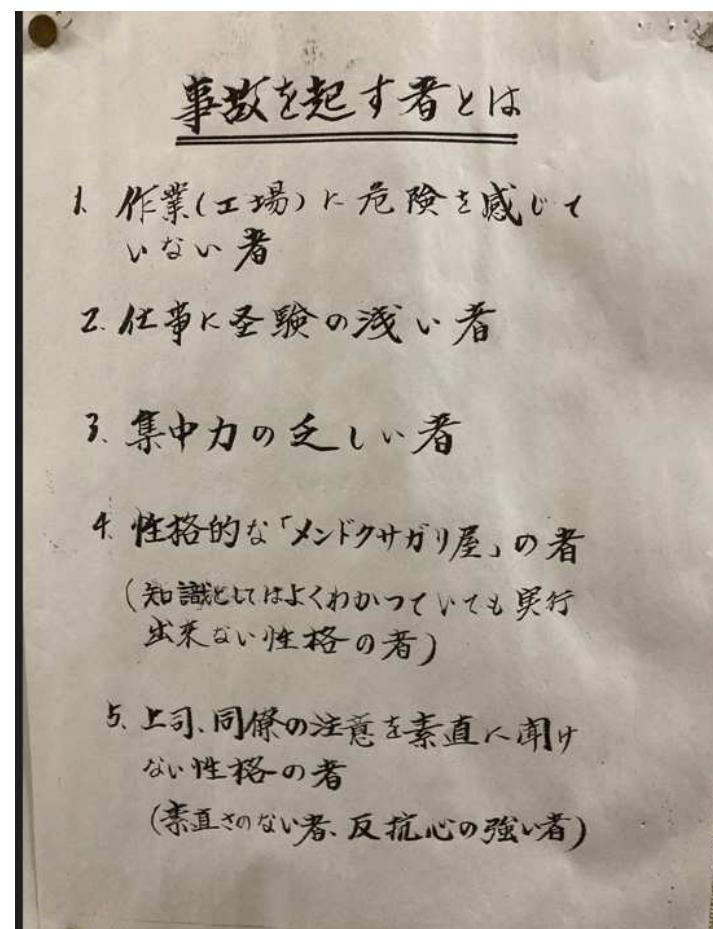 事故を起す者とは
1. 作業(工場)に危険を感じて
いない者
2. 仕事に経験の浅い者
3. 集中力の乏しい者
4. 性格的な「メンドクサガリ屋」の者
(知識としてはよくわかつていても実行
出来ない性格の者)
5. 上司、同僚の注意を素直に聞け
ない性格の者
(素直さのない者、反抗心の強い者)